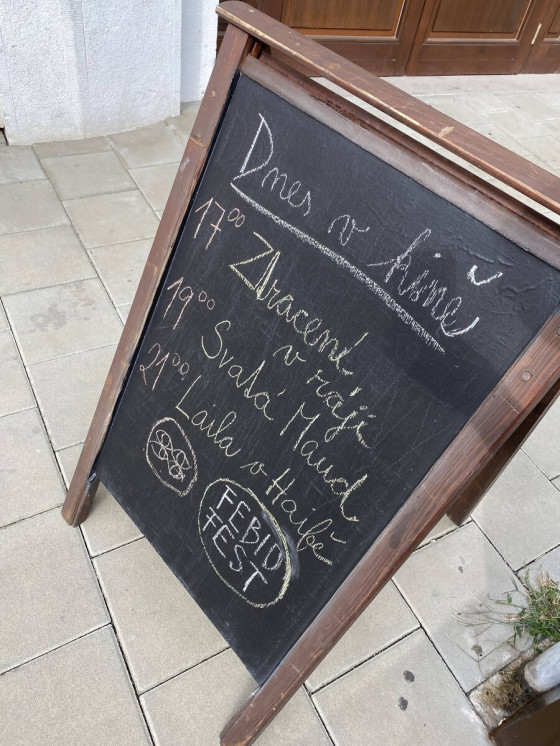 Dnes v kině
17⁰⁰ Ztracení
v ráji
19⁰⁰ Svatá Maud
21⁰⁰ Laila v Haifě
FEBIO
FEST